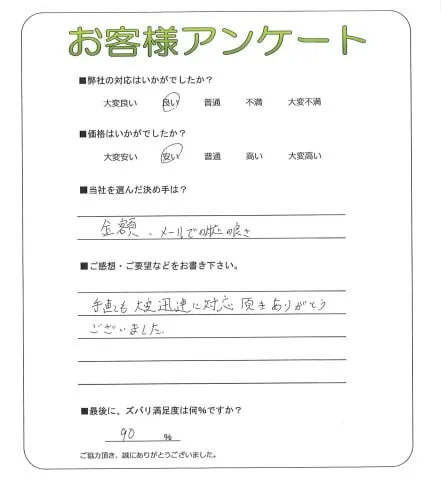 お客様アンケート
■弊社の対応はいかがでしたか?
大変良い 良い 普通 不満 大変不満
■価格はいかがでしたか?
大変安い 安い 普通 高い 大変高い
■当社を選んだ決め手は?
金額、メールでの の良さ
■ご感想・ご要望などをお書き下さい。
手直しも 大変迅速に対応頂きありがとう
ございました
■最後に、ズバリ満足度は何%ですか?
90 %
ご協力頂き、誠にありがとうございました。